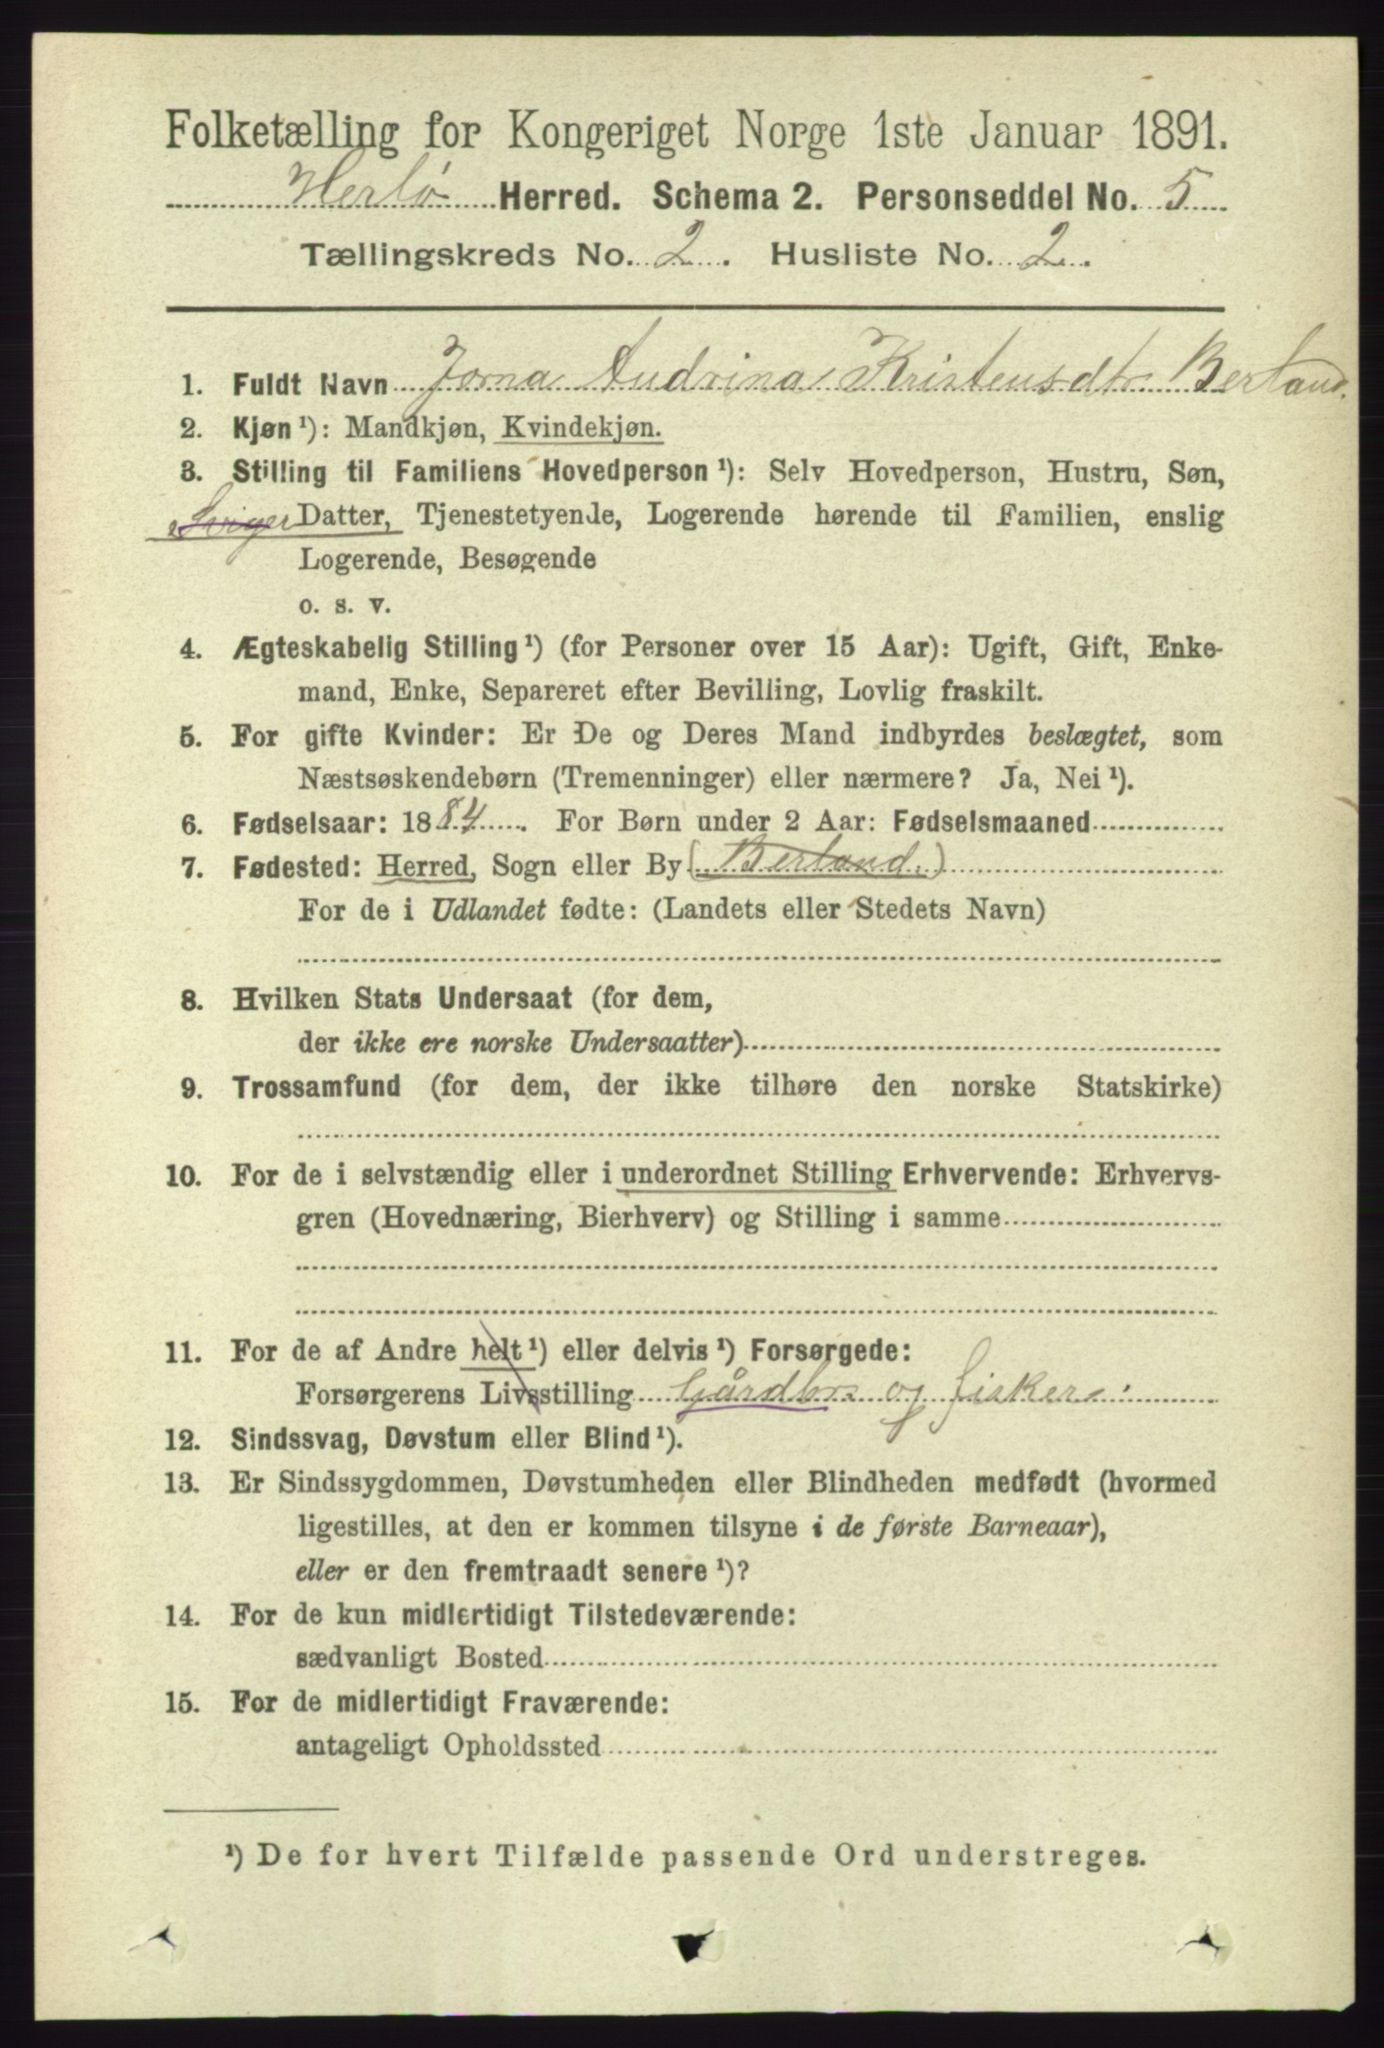 Folketælling for Kongeriget Norge 1ste Januar 1891.
Herlø Herred. Schema 2. Personseddel No. 5
Tællingskreds No. 2. Husliste No. 2.
1. Fuldt Navn Jorna Andrina Kristensdtr Berland.
2. Kjøn ¹): Mandkjøn, Kvindekjøn.
3. Stilling til Familiens Hovedperson ¹): Selv Hovedperson, Hustru, Søn,
Sviger Datter, Tjenestetyende, Logerende hørende til Familien, enslig
Logerende, Besøgende
o. s. v.
4. Ægteskabelig Stilling ¹) (for Personer over 15 Aar): Ugift, Gift, Enke-
mand, Enke, Separeret efter Bevilling, Lovlig fraskilt.
5. For gifte Kvinder: Er De og Deres Mand indbyrdes beslægtet, som
Næstsøskendebørn (Tremenninger) eller nærmere? Ja, Nei ¹).
6. Fødselsaar: 1884. For Børn under 2 Aar: Fødselsmaaned
7. Fødested: Herred, Sogn eller By (Berland.)
For de i Udlandet fødte: (Landets eller Stedets Navn)
8. Hvilken Stats Undersaat (for dem,
der ikke ere norske Undersaatter)
9. Trossamfund (for dem, der ikke tilhøre den norske Statskirke)
10. For de i selvstændig eller i underordnet Stilling Erhvervende: Erhvervs-
gren (Hovednæring, Bierhverv) og Stilling i samme
11. For de af Andre helt ¹) eller delvis ¹) Forsørgede:
Forsørgerens Livsstilling Gårdbr og fisker
12. Sindssvag, Døvstum eller Blind ¹).
13. Er Sindssygdommen, Døvstumheden eller Blindheden medfødt (hvormed
ligestilles, at den er kommen tilsyne i de første Barneaar),
eller er den fremtraadt senere ¹)?
14. For de kun midlertidigt Tilstedeværende:
sædvanligt Bosted
15. For de midlertidigt Fraværende:
antageligt Opholdssted
¹) De for hvert Tilfælde passende Ord understreges.